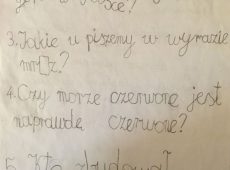 3. Jakie u piszemy w wyrazie
mr[]z?
4. Czy morze czerwone jest
naprawdę czerwone?
5. Kto zbudował